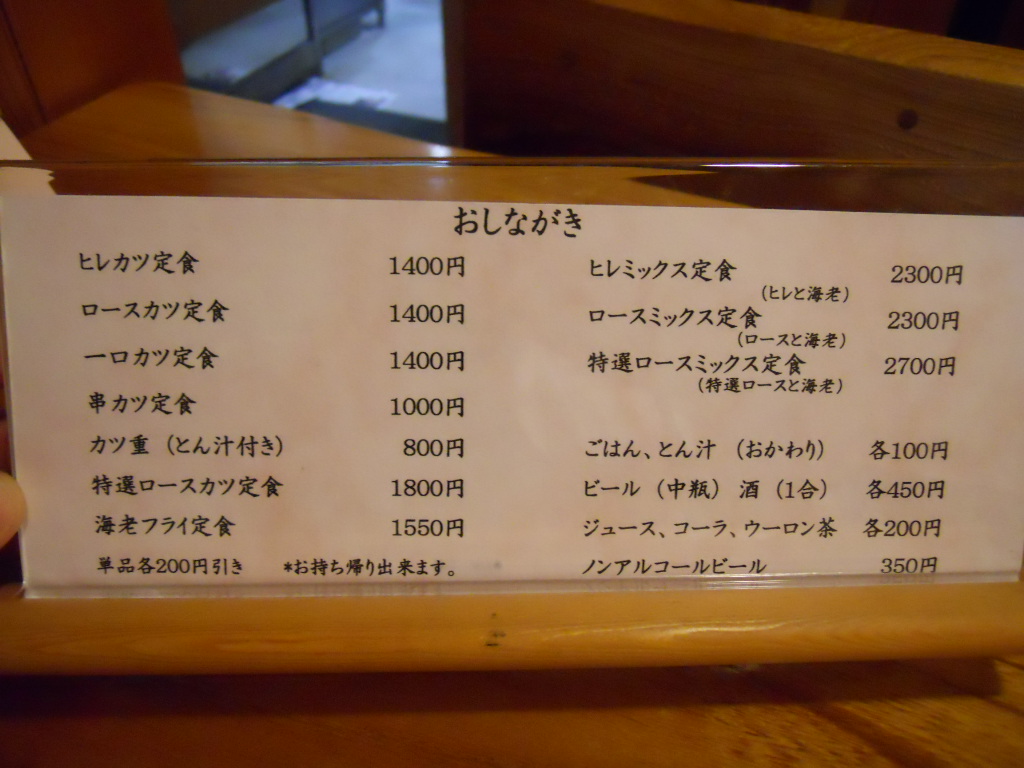 おしながき
ヒレカツ定食 1400円
ロースカツ定食 1400円
一口カツ定食 1400円
串カツ定食 1000円
カツ重（とん汁付き） 800円
特選ロースカツ定食 1800円
海老フライ定食 1550円
単品各200円引き *お持ち帰り出来ます。
ヒレミックス定食 2300円
（ヒレと海老）
ロースミックス定食 2300円
（ロースと海老）
特選ロースミックス定食 2700円
（特選ロースと海老）
ごはん、とん汁（おかわり） 各100円
ビール（中瓶）酒（1合） 各450円
ジュース、コーラ、ウーロン茶 各200円
ノンアルコールビール 350円